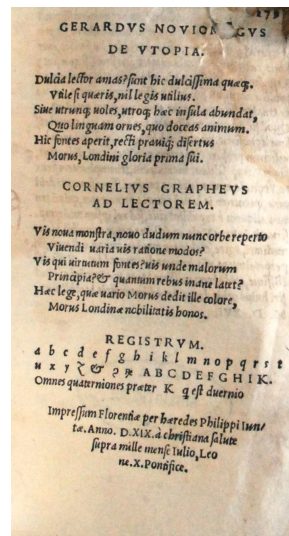 279
GERARDVS NOVIOMAGVS
DE VTOPIA.
Dulcia lector amas? sunt hic dulcissima quæq;.
Vtile si quæris, nil legis utilius.
Siue utrunq; uoles, utroq; hæc insula abundat,
Quo linguam ornes, quo doceas animum.
Hic fontes aperit, recti prauiq; disertus
Morus, Londini gloria prima sui.
CORNELIVS GRAPHEVS
AD LECTOREM.
Vis noua monstra, nouo dudum nunc orbe reperto
Viuendi uaria uis ratione modos?
Vis qui uirtutum fontes? uis unde malorum
Principia? & quantum rebus inane latet?
Hæc lege, quæ uario Morus dedit ille colore,
Morus Londinæ nobilitatis honos.
REGISTRVM.
a b c d e f g h i k l m n o p q r s t
u x y z & ꝯ ꝝ A B C D E F G H I K.
Omnes quaterniones præter K q est duernio
Impressum Florentiæ per hæredes Philippi Iun-
tæ. Anno. D.XIX. à christiana salute
supra mille mense Iulio, Leo
ne. X. Pontifice.